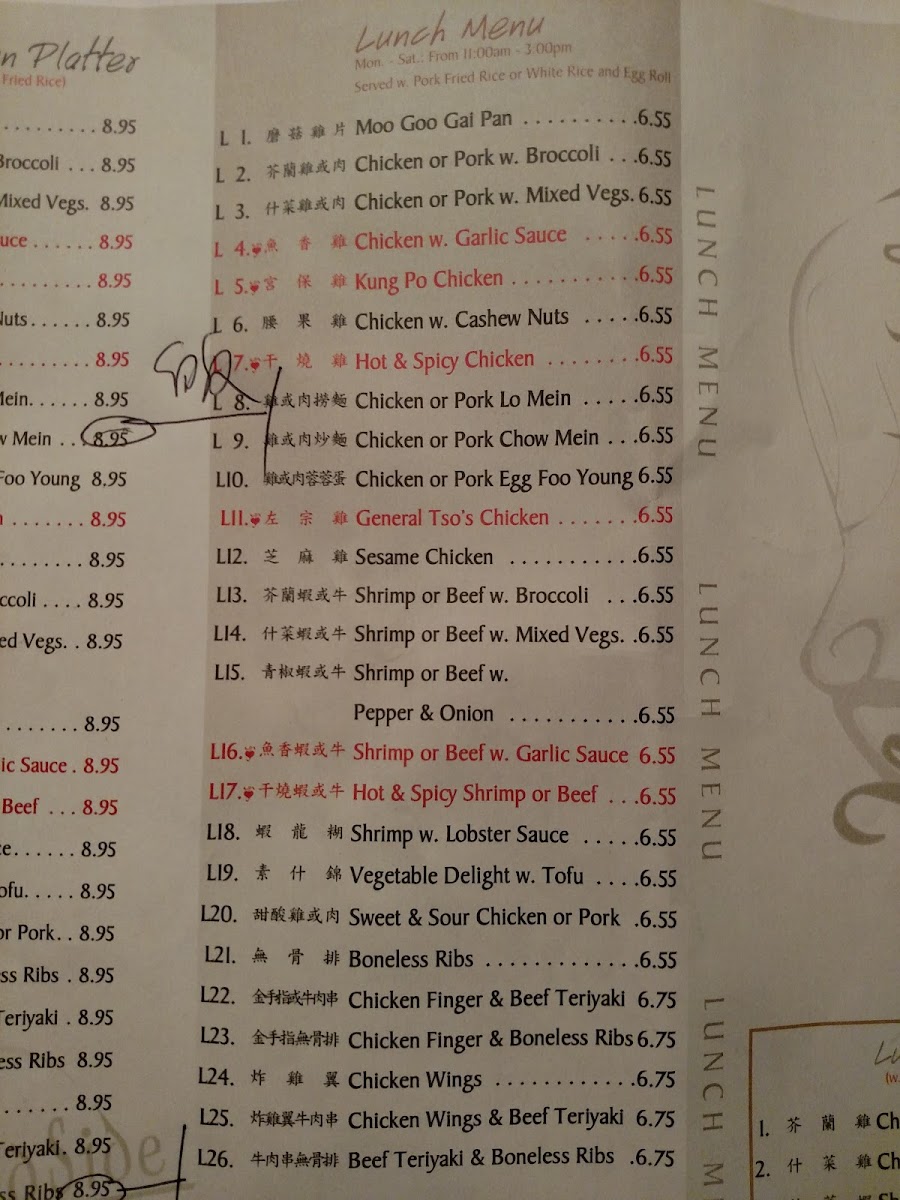 n Platter
Fried Rice)
. . . . . . . . . . 8.95
Broccoli . . . 8.95
Mixed Vegs. 8.95
uce . . . . . . 8.95
. . . . . . . . . 8.95
Nuts. . . . . . 8.95
. . . . . . . . . 8.95
Mein. . . . . . 8.95
w Mein . . 8.95
Foo Young 8.95
. . . . . . . 8.95
. . . . . . . . 8.95
ccoli . . . . 8.95
ed Vegs. . 8.95
. . . . . . . 8.95
ic Sauce . 8.95
Beef . . . 8.95
ce. . . . . . 8.95
ofu. . . . . 8.95
or Pork. . 8.95
ss Ribs . 8.95
Teriyaki . 8.95
ess Ribs 8.95
. . . . . . 8.95
Teriyaki. 8.95
ss Ribs 8.95
side
Lunch Menu
Mon. - Sat.: From 11:00am - 3:00pm
Served w. Pork Fried Rice or White Rice and Egg Roll
L 1. 磨菇雞片 Moo Goo Gai Pan . . . . . . . . . .6.55
L 2. 芥蘭雞或肉 Chicken or Pork w. Broccoli . . .6.55
L 3. 什菜雞或肉 Chicken or Pork w. Mixed Vegs. 6.55
L 4. 魚香雞 Chicken w. Garlic Sauce . . . . .6.55
L 5. 宮保雞 Kung Po Chicken . . . . . . . . . . .6.55
L 6. 腰果雞 Chicken w. Cashew Nuts . . . . .6.55
L 7. 干燒雞 Hot & Spicy Chicken . . . . . . . .6.55
L 8. 雞或肉撈麵 Chicken or Pork Lo Mein . . . . .6.55
L 9. 雞或肉炒麵 Chicken or Pork Chow Mein . . .6.55
L10. 雞或肉蓉蓉蛋 Chicken or Pork Egg Foo Young 6.55
L11. 左宗雞 General Tso's Chicken . . . . . . .6.55
L12. 芝麻雞 Sesame Chicken . . . . . . . . . . .6.55
L13. 芥蘭蝦或牛 Shrimp or Beef w. Broccoli . . .6.55
L14. 什菜蝦或牛 Shrimp or Beef w. Mixed Vegs. .6.55
L15. 青椒蝦或牛 Shrimp or Beef w.
Pepper & Onion . . . . . . . . . . .6.55
L16. 魚香蝦或牛 Shrimp or Beef w. Garlic Sauce 6.55
L17. 干燒蝦或牛 Hot & Spicy Shrimp or Beef . . .6.55
L18. 蝦龍糊 Shrimp w. Lobster Sauce . . . . .6.55
L19. 素什錦 Vegetable Delight w. Tofu . . . .6.55
L20. 甜酸雞或肉 Sweet & Sour Chicken or Pork .6.55
L21. 無骨排 Boneless Ribs . . . . . . . . . . . . .6.55
L22. 金手指或牛肉串 Chicken Finger & Beef Teriyaki 6.75
L23. 金手指無骨排 Chicken Finger & Boneless Ribs 6.75
L24. 炸雞翼 Chicken Wings . . . . . . . . . . . .6.75
L25. 炸雞翼牛肉串 Chicken Wings & Beef Teriyaki 6.75
L26. 牛肉串無骨排 Beef Teriyaki & Boneless Ribs .6.75
LUNCH MENU
LUNCH MENU
LUNCH M
Lu
(w.
1. 芥蘭雞 Ch
2. 什菜雞 Ch